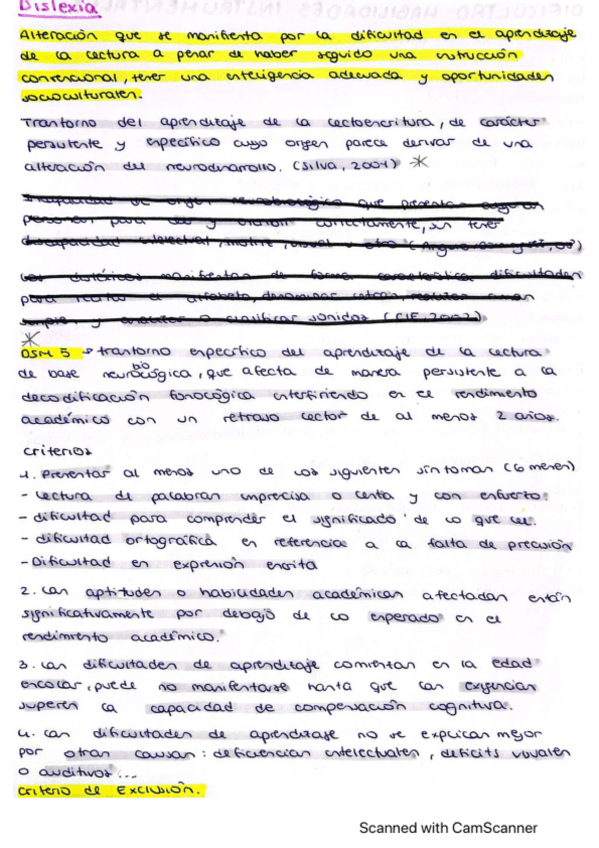 Dislexia
Alteración que se manifiesta por la dificultad en el aprendizaje
de la lectura a pesar de haber seguido una instrucción
convencional, tener una inteligencia adecuada y oportunidades
socioculturales.
Trastorno del aprendizaje de la lectoescritura, de carácter
persistente y específico cuyo origen parece derivar de una
alteración del neurodesarrollo. (Silva, 2001) *
Incapacidad de origen neurobiológico que presentan algunas
personas para leer y escribir correctamente, sin tener
discapacidad intelectual, motriz, visual u otra
Los disléxicos manifiestan de forma característica dificultades
para recitar el alfabeto, denominar letras, realizar rimas
simples y analizar o clasificar sonidos (CIE, 2002)
*
DSM 5 → trastorno específico del aprendizaje de la lectura
de base neurobiológica, que afecta de manera persistente a la
decodificación fonológica interfiriendo en el rendimiento
académico con un retraso lector de al menos 2 años.
Criterios
1. Presentar al menos uno de los siguientes síntomas (6 meses)
- Lectura de palabras imprecisa o lenta y con esfuerzo.
- dificultad para comprender el significado de lo que lee.
- dificultad ortográfica en referencia a la falta de precisión
- Dificultad en expresión escrita
2. Las aptitudes o habilidades académicas afectadas están
significativamente por debajo de lo esperado en el
rendimiento académico.
3. Las dificultades de aprendizaje comienzan en la edad
escolar, puede no manifestarse hasta que las exigencias
superen la capacidad de compensación cognitiva.
4. Las dificultades de aprendizaje no se explican mejor
por otras causas: deficiencias intelectuales, déficits visuales
o auditivos...
Criterio de EXCLUSIÓN.
Scanned with CamScanner